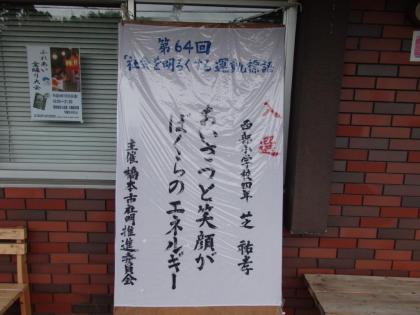 第64回
「社会を明るくする運動」標語
入選
西部小学校四年 芝 祐孝
あいさつと笑顔が
ぼくらのエネルギー
主催 橋本古佐田推進委員会
ふれあい
盆踊り大会